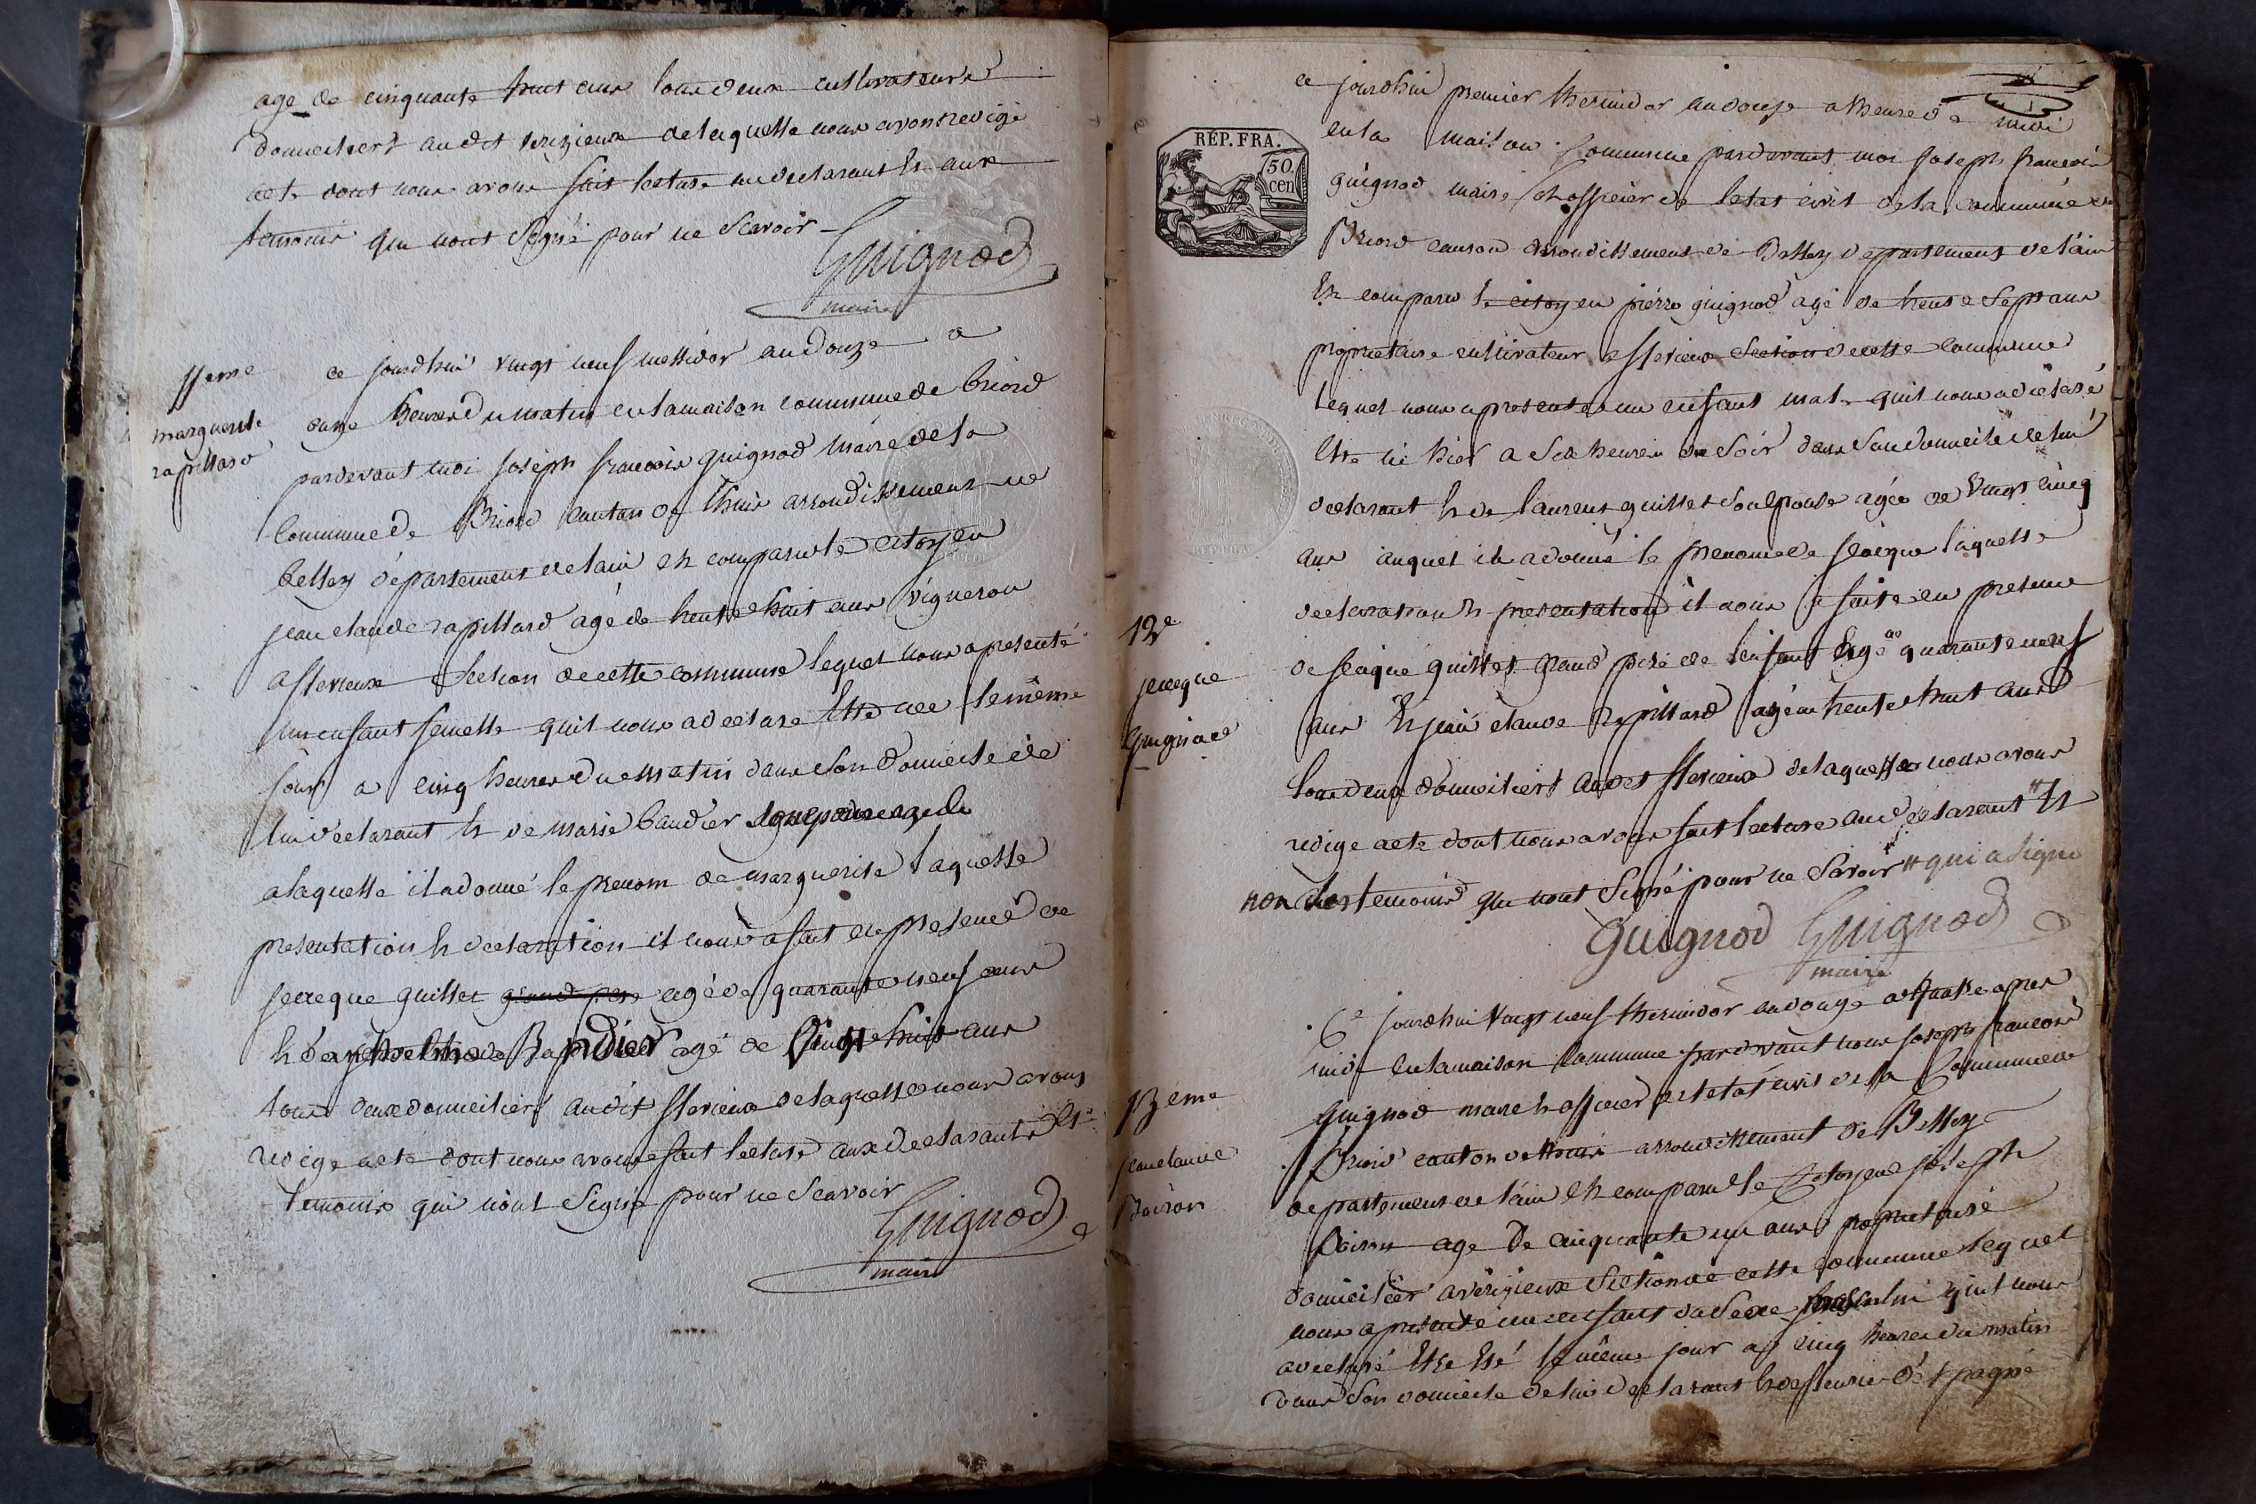 age de cinquante huit ans tous deux cultivateurs
domiciliers audit verizieux de laquelle nous avons redigé
acte dont nous avons fait lecture au declarant et aux
temoins qui nont Signé pour ne Scavoir
Guignod
maire
11eme
marguerite
rapillard
ce jourdhui vingt neuf messidor an douze a
onze heures du matin en la maison commune de briord
pardevant moi joseph francois guignod maire de la
Commune de Briord canton de lhuis arrondissement de
belley département de lain et comparu le citoyen
jean claude rapillard agé de trente huit ans vigneron
a flevieux Section de cette commune lequel nous a presenté
un enfant femelle quil nous a declare Etre nee le même
jour a cinq heures du matin dans son domicile de
lui declarant et de marie baudier
a laquelle il a donné le prenom de marguerite laquelle
presentation et declaration il nous a fait en presence de
jacque guillet grand pere agé de quarante neuf ans
et Bandier agé de Vingt huit ans
tous deux domiciliers audit flevieux de laquelle nous avons
redige acte dont nous avons fait lecture aux declarants et
temoins qui nont Signé pour ne Scavoir
Guignod
maire
REP. FRA.
50
cen
ce jourdhui premier thermidor an douze a lheure de midi
en la maison Commune pardevant moi joseph francois
guignod maire et officier de letat civil de la commune de
Briord canton arrondissement de Belley departement de lain
Est comparu le citoyen pierre guignod agé de trente Sept ans
proprietaire cultivateur a flevieux Section de cette commune
lequel nous a presenté un enfant male quil nous a déclaré
Etre né hier a Six heures du Soir dans Son domicile de lui
declarant et de laurence guillet Son epouse agée de Vingt cinq
ans auquel il a donné le prenom de jacque laquelle
declaration et presentation il nous a faite en presence
de jacque guillet grand pere de lenfant agé quarante neuf
ans et jean claude Rapillard agé de trente huit ans
tous deux domiciliers audit flevieux de laquelle nous avons
redige acte dont nous avons fait lecture au declarant # et
non des temoins qui nont Signé pour ne Savoir # qui a signé
Guignod Guignod
maire
12e
jacque
Guignod
13eme
jean claude
Boiron
Ce jourdhui vingt neuf thermidor an douze a quatre apres
midi en la maison commune pardevant nous joseph francois
Guignod maire et officier de letat civil de la Commune de
Briord canton de lhuis arrondissement de Belley
departement de lain et comparu le Citoyen joseph
Boiron age de cinquante un ans proprietaire
domicilier a verizieux Section de cette commune lequel
nous a presenté un enfant du Sexe masculin quil nous
a declaré Etre né le même jour a cinq heures du matin
dans Son domicile de lui declarant et de